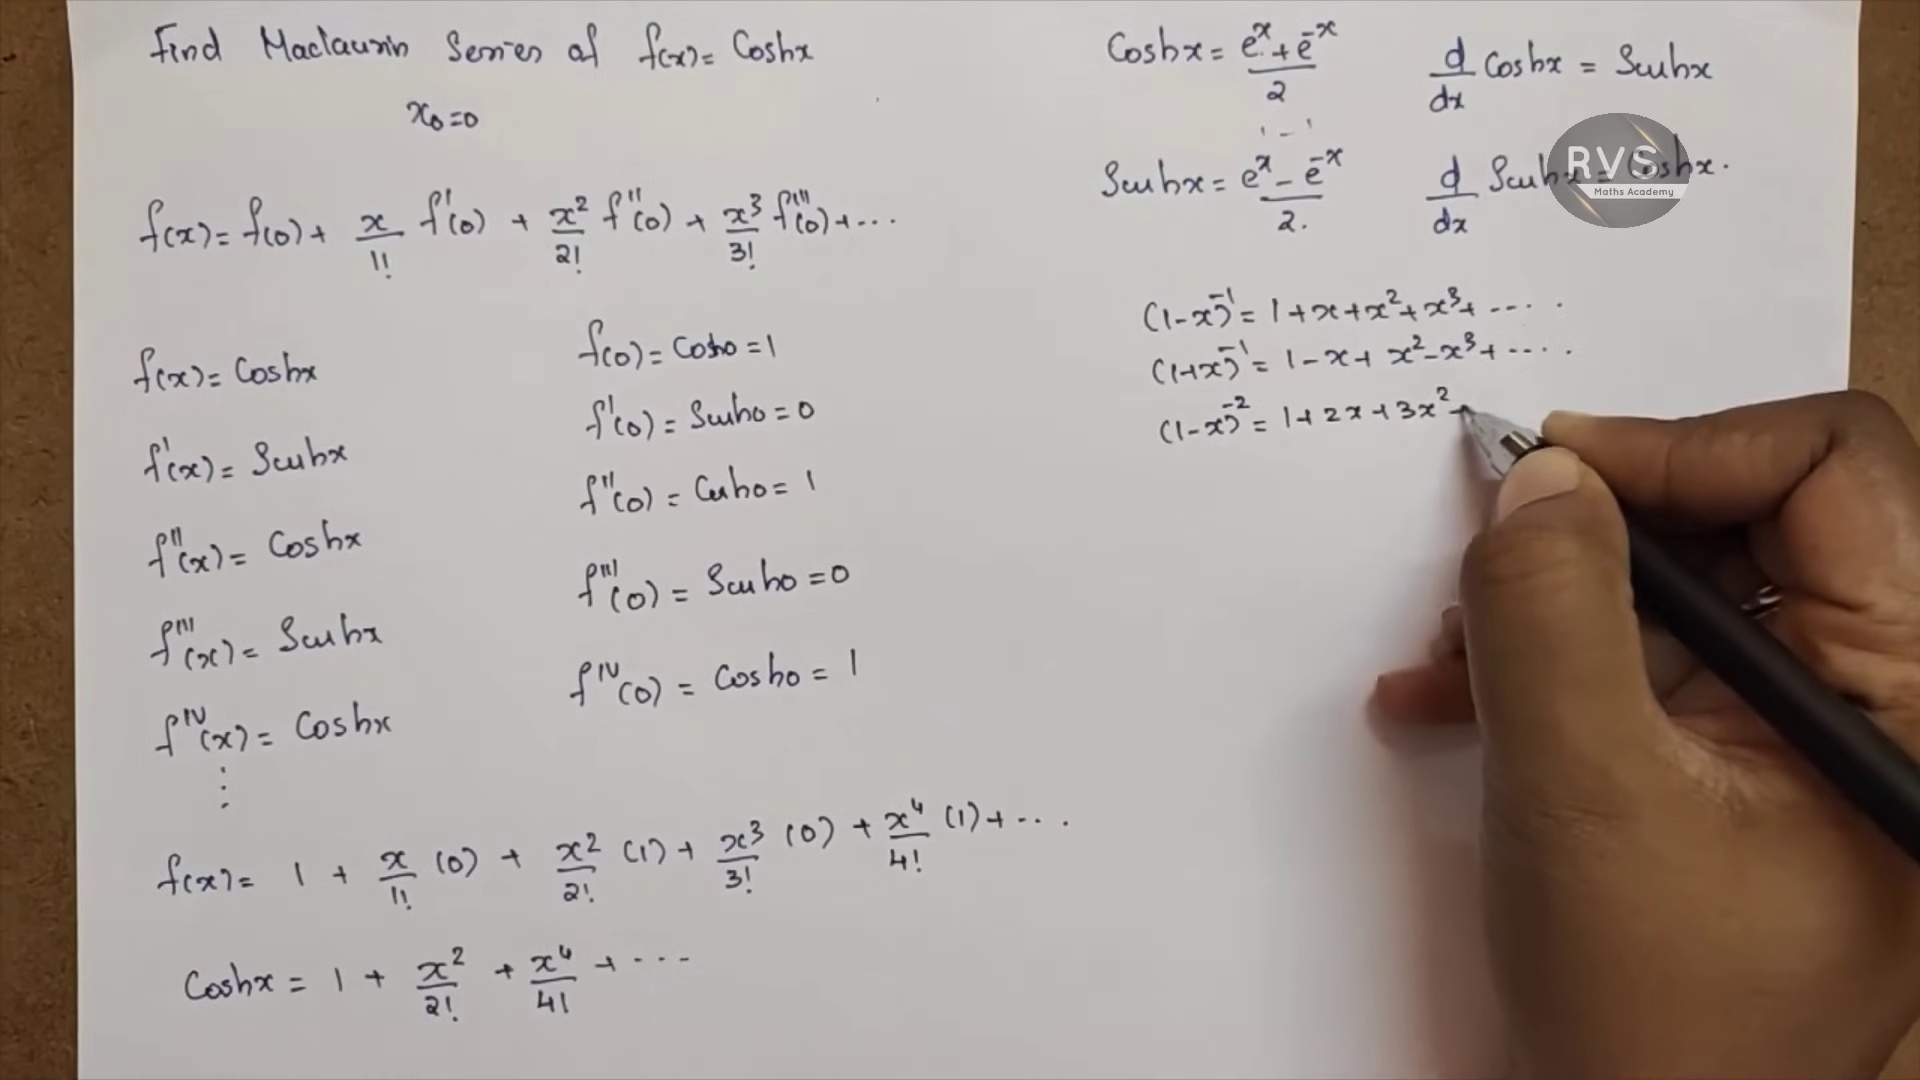 Find Maclaurin Series of f(x) = Coshx
x₀=0
f(x) = f(0) + x/1! f'(0) + x²/2! f''(0) + x³/3! f'''(0) + ...
f(x) = Coshx
f(0) = Cosh0 = 1
f'(x) = Sinhx
f'(0) = Sinh0 = 0
f''(x) = Coshx
f''(0) = Cosh0 = 1
f'''(x) = Sinhx
f'''(0) = Sinh0 = 0
f^IV(x) = Coshx
f^IV(0) = Cosh0 = 1
⋮
f(x) = 1 + x/1! (0) + x²/2! (1) + x³/3! (0) + x⁴/4! (1) + ...
Coshx = 1 + x²/2! + x⁴/4! + ...
Coshx = (e^x + e^-x)/2
d/dx Coshx = Sinhx
1 - 1
Sinhx = (e^x - e^-x)/2.
d/dx Sinhx = Coshx.
RVS
Maths Academy
(1-x)^-1 = 1+x+x²+x³+ ....
(1+x)^-1 = 1-x+x²-x³+ ....
(1-x)^-2 = 1+2x+3x²+